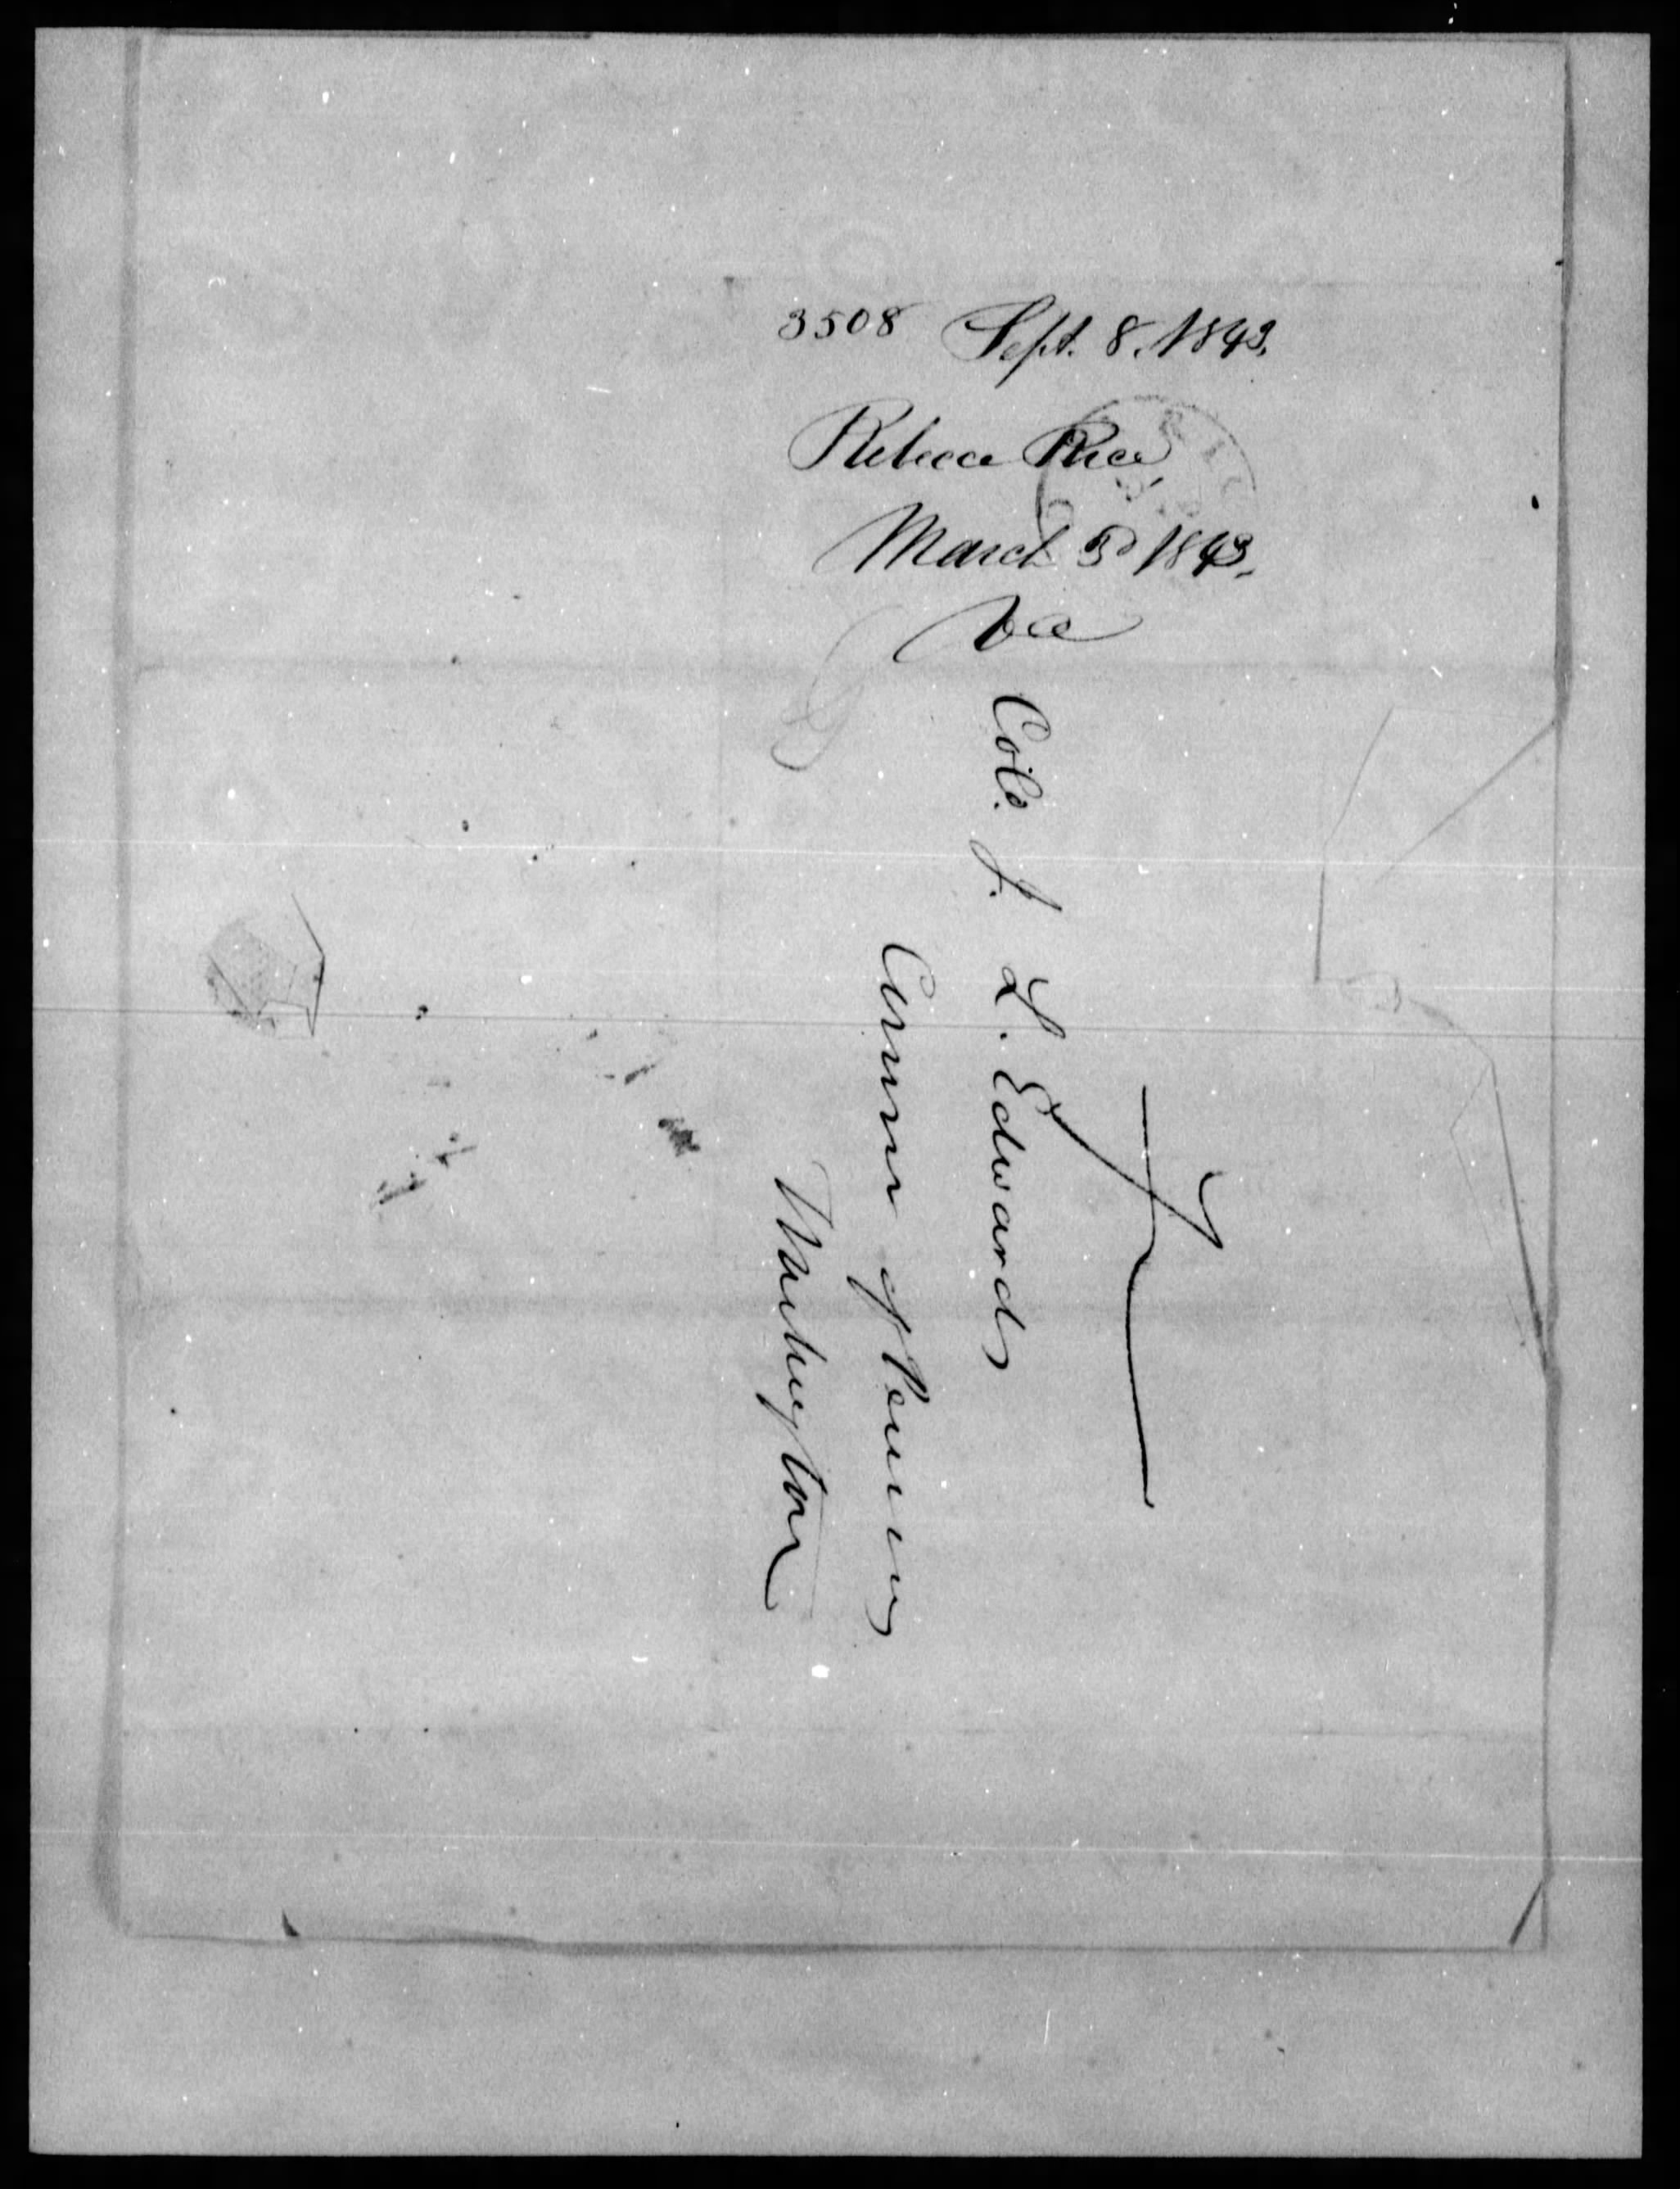 3508 Sept. 8. 1843.
Rebecca Rice
March 3d 1843.
Va
Col. J. L. Edwards
Comr of Pensions
Washington